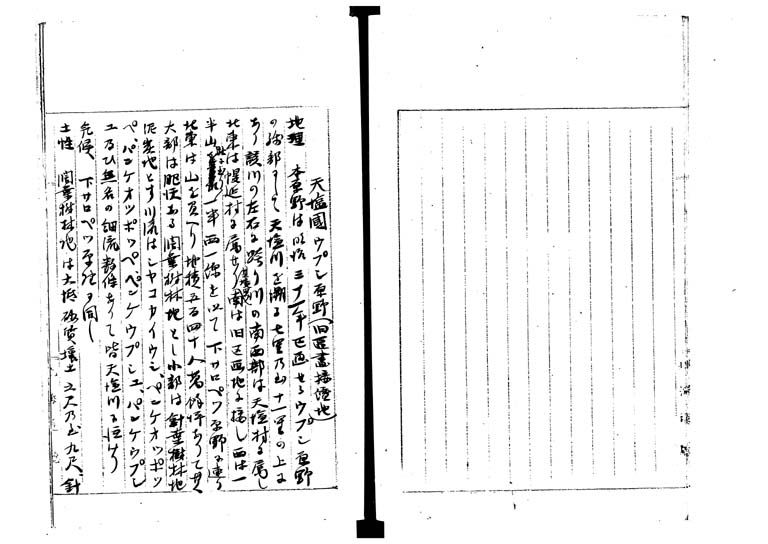 天塩國ウブシ原野(旧区画接続地)
地理 本原野は明治三十一年区画せるウブシ原野
の終部にして天塩川を溯る七里乃至十一里の上に
あり該川の左右に跨り川の南西部は天塩村に属し
北東は幌延村に属せり南は旧区画地に接し西は一
半山 一半西一線を以て下サロペツ原野に連り
北東は山を負へり地積五百四十八萬余坪ありて其
大部は肥沃なる闊葉樹林地とし小部は針葉樹林地
泥炭地とす川流はシヤコカイウシ、ペンケオツポツ
ペ、パンケオツポツペ、ペンケウブシユ、パンケウブシ
ユ及ひ無名の細流数條ありて皆天塩川に注けり
気候 下サロペツ原野に同し
土性 闊葉樹林地は大抵砂質壌土二尺乃至九尺、針